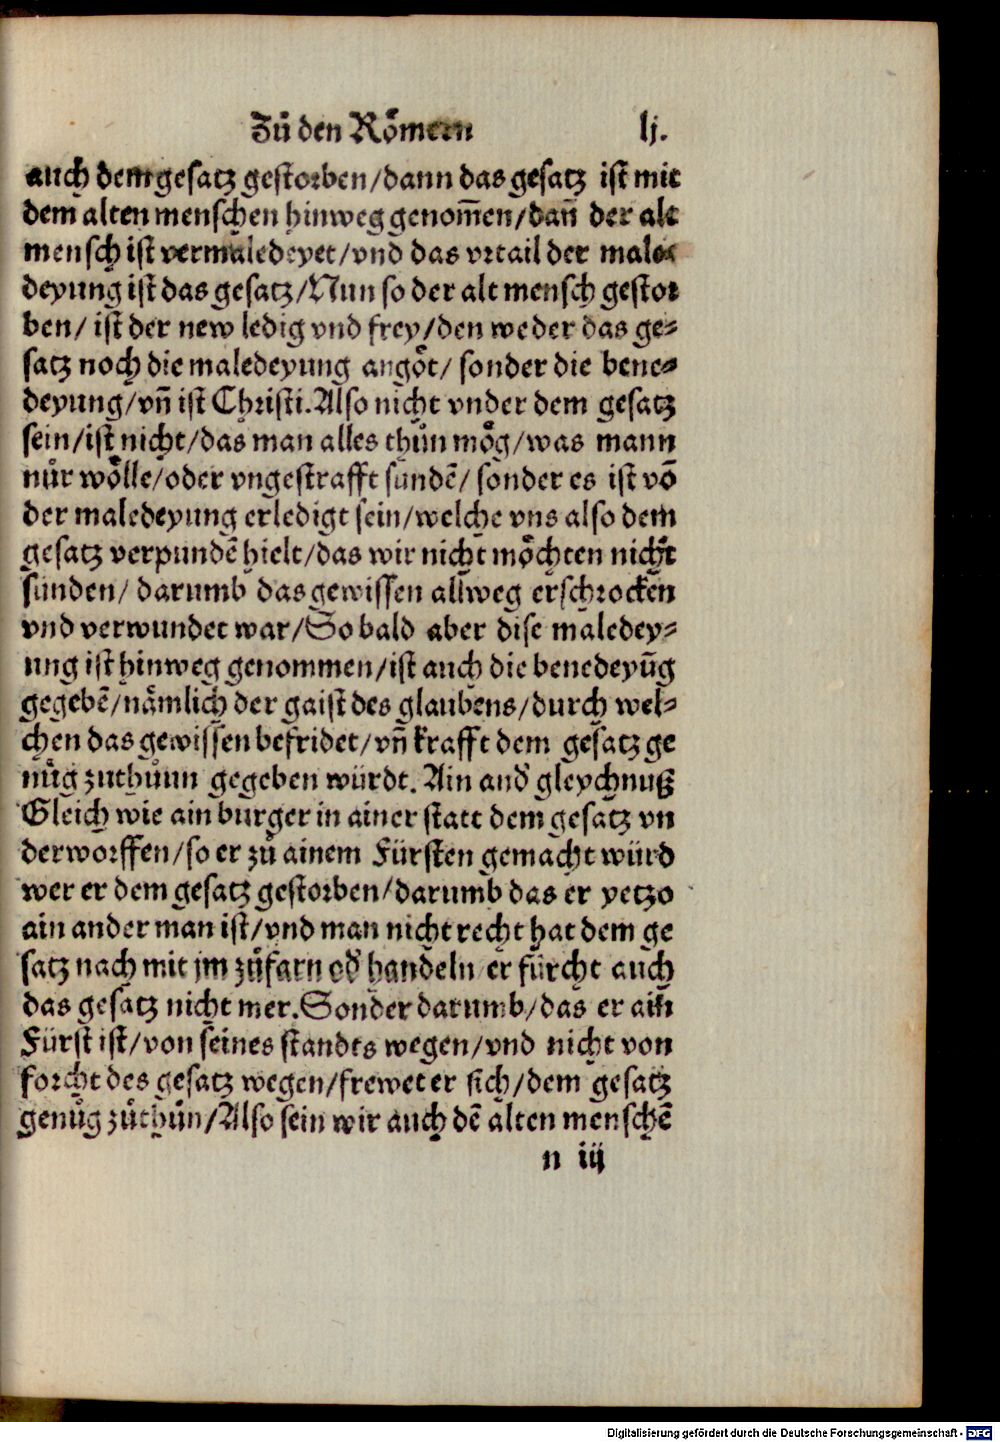 Zů den Rőmern lj.
auch dem gesatz gestorben/dann das gesatz ist mit
dem alten menschen hinweg genom̄en/dan̄ der alt
mensch ist vermaledeyet/vnd das vrtail der male⸗
deyung ist das gesatz/Nun so der alt mensch gestor
ben/ ist der new ledig vnd frey/den weder das ge⸗
satz noch die maledeyung angőt/ sonder die bene⸗
deyung/vn̄ ist Christi.Also nicht vnder dem gesatz
sein/ist nicht/das man alles thůn mőg/was mann
nůr wőlle/oder vngestrafft sündē/ sonder es ist vō
der maledeyung erledigt sein/welche vns also dem
gesatz verpundē hielt/das wir nicht mőchten nicht
sünden/ darumb das gewissen allweg erschrocken
vnd verwundet war/So bald aber dise maledey⸗
ung ist hinweg genommen/ist auch die benedeyūg
gegebē/nämlich der gaist des glaubens/durch wel⸗
chen das gewissen befridet/vn̄ krafft dem gesatz ge
nůg zuthůnn gegeben würdt. Ain and̓ gleychnuß
Gleich wie ain burger in ainer statt dem gesatz vn
derworffen/so er zů ainem Fürsten gemacht würd
wer er dem gesatz gestorben/darumb das er yetzo
ain ander man ist/vnd man nicht recht hat dem ge
satz nach mit jm zůfarn od̓ handeln er fürcht auch
das gesatz nicht mer.Sonder darumb/das er ain
Fürst ist/von seines standes wegen/vnd nicht von
forcht des gesatz wegen/frewet er sich/dem gesatz
genůg zůthůn/Also sein wir auch dē alten menschē
n iij
Digitalisierung gefördert durch die Deutsche Forschungsgemeinschaft - DFG